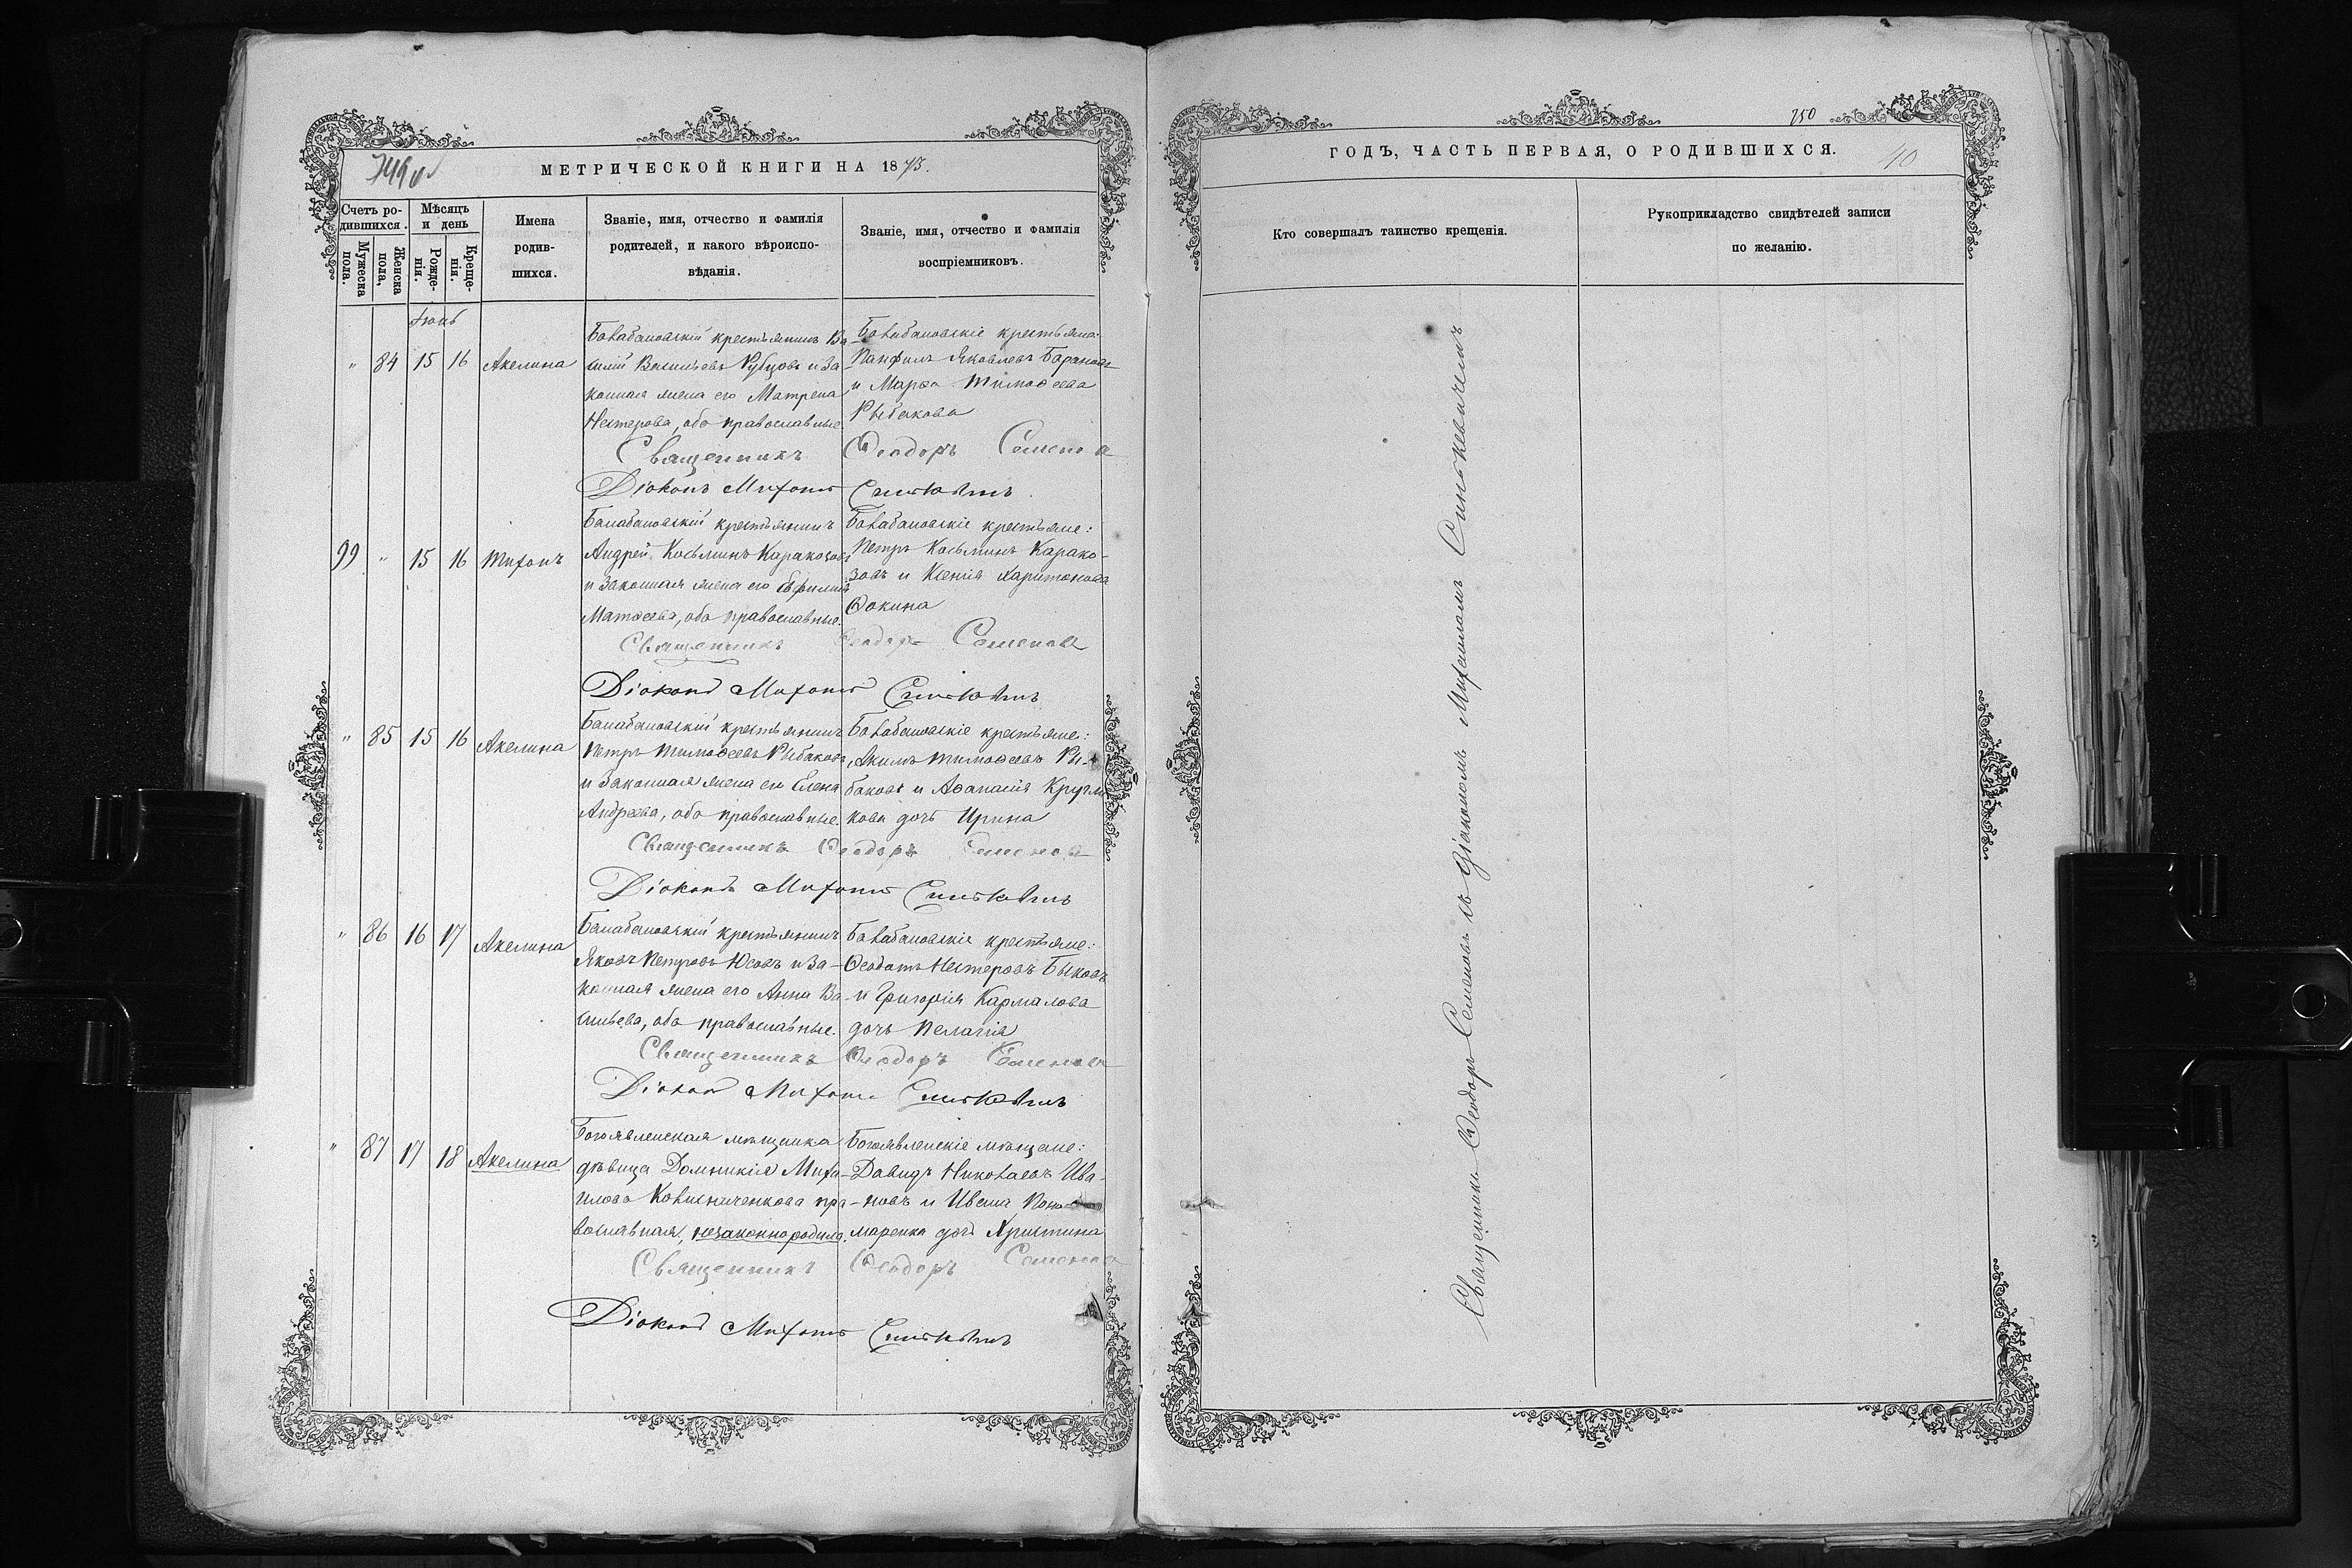 749 об
МЕТРИЧЕСКОЙ КНИГИ НА 1873.
Счетъ ро-
дившихся.
Мужеска
пола.
Женска
пола.
Мѣсяцъ
и день
Рожде-
нія.
Креще-
нія.
Имена
родив-
шихся.
Званіе, имя, отчество и фамилія
родителей, и какого вѣроиспо-
вѣданія.
Званіе, имя, отчество и фамилія
воспріемниковъ.
Іюнь
" 84 15 16 Акелина
Балабановскій крестьянинъ Ва-
силій Васильевъ Рубцовъ и за-
конная жена его Матрена
Нестерова, оба православные.
Балабановскіе крестьяне:
Панфилъ Яковлевъ Барановъ
и Марѳа Тимоѳеева
Рыбакова
Священникъ Ѳеодоръ Семеновъ
Діаконъ Митрофанъ Синькевичъ
99 " 15 16 Тихонъ
Балабановскій крестьянинъ
Андрей Косьминъ Каракозовъ
и законная жена его Евфимія
Матѳеева, оба православные.
Балабановскіе крестьяне:
Петръ Косьминъ Карако-
зовъ и Ксенія Харитонова
Ѳокина
Священникъ Ѳеодоръ Семеновъ
Діаконъ Синькевичъ
" 85 15 16 Акелина
Балабановскій крестьянинъ
Петръ Тимоѳеевъ Рыбаковъ
и законная жена его Елена
Андреева, оба православные.
Балабановскіе крестьяне:
Акимъ Тимоѳеевъ Ры-
баковъ и Аѳанасія Кругли-
кова дочь Ирина
Священникъ Ѳеодоръ Семеновъ
Діаконъ Синькевичъ
" 86 16 17 Акелина
Балабановскій крестьянинъ
Яковъ Петровъ Юсовъ и за-
конная жена его Анна Ва-
сильева, оба православные.
Балабановскіе крестьяне:
Ѳеодотъ Нестеровъ Быковъ
и Григорія Кармалова
дочь Пелагія
Священникъ Ѳеодоръ Семеновъ
Діаконъ Синькевичъ
" 87 17 18 Акелина
Богоявленская мѣщанка
дѣвица Домникія Миха-
илова пра-
вославная, незаконнорожд.
Богоявленскіе мѣщане:
Давидъ Николаевъ Ива-
новъ и Ивана Поно-
маренка дочь Христина
Священникъ Ѳеодоръ Семеновъ
Діаконъ Синькевичъ
750
ГОДЪ, ЧАСТЬ ПЕРВАЯ, О РОДИВШИХСЯ.
40
Кто совершалъ таинство крещенія.
Рукоприкладство свидѣтелей записи
по желанію.
Священникъ Ѳеодоръ Семеновъ съ діакономъ Синькевичемъ